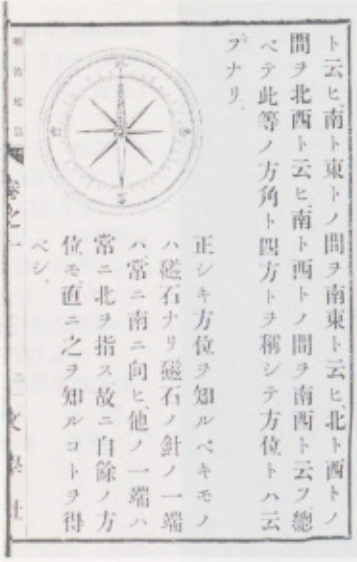 ト云ヒ、南ト東トノ間ヲ南東ト云ヒ、北ト西トノ
間ヲ北西ト云ヒ、南ト西トノ間ヲ南西ト云フ、總
ベテ此等ノ方角ト四方トヲ稱シテ方位トハ云
フナリ、
正シキ方位ヲ知ルベキモノ
ハ磁石ナリ、磁石ノ針ノ一端
ハ常ニ南ニ向ヒ、他ノ一端ハ
常ニ北ヲ指ス、故ニ自餘ノ方
位モ、直ニ之ヲ知ルコトヲ得
ベシ、
卷之一
二
文學社